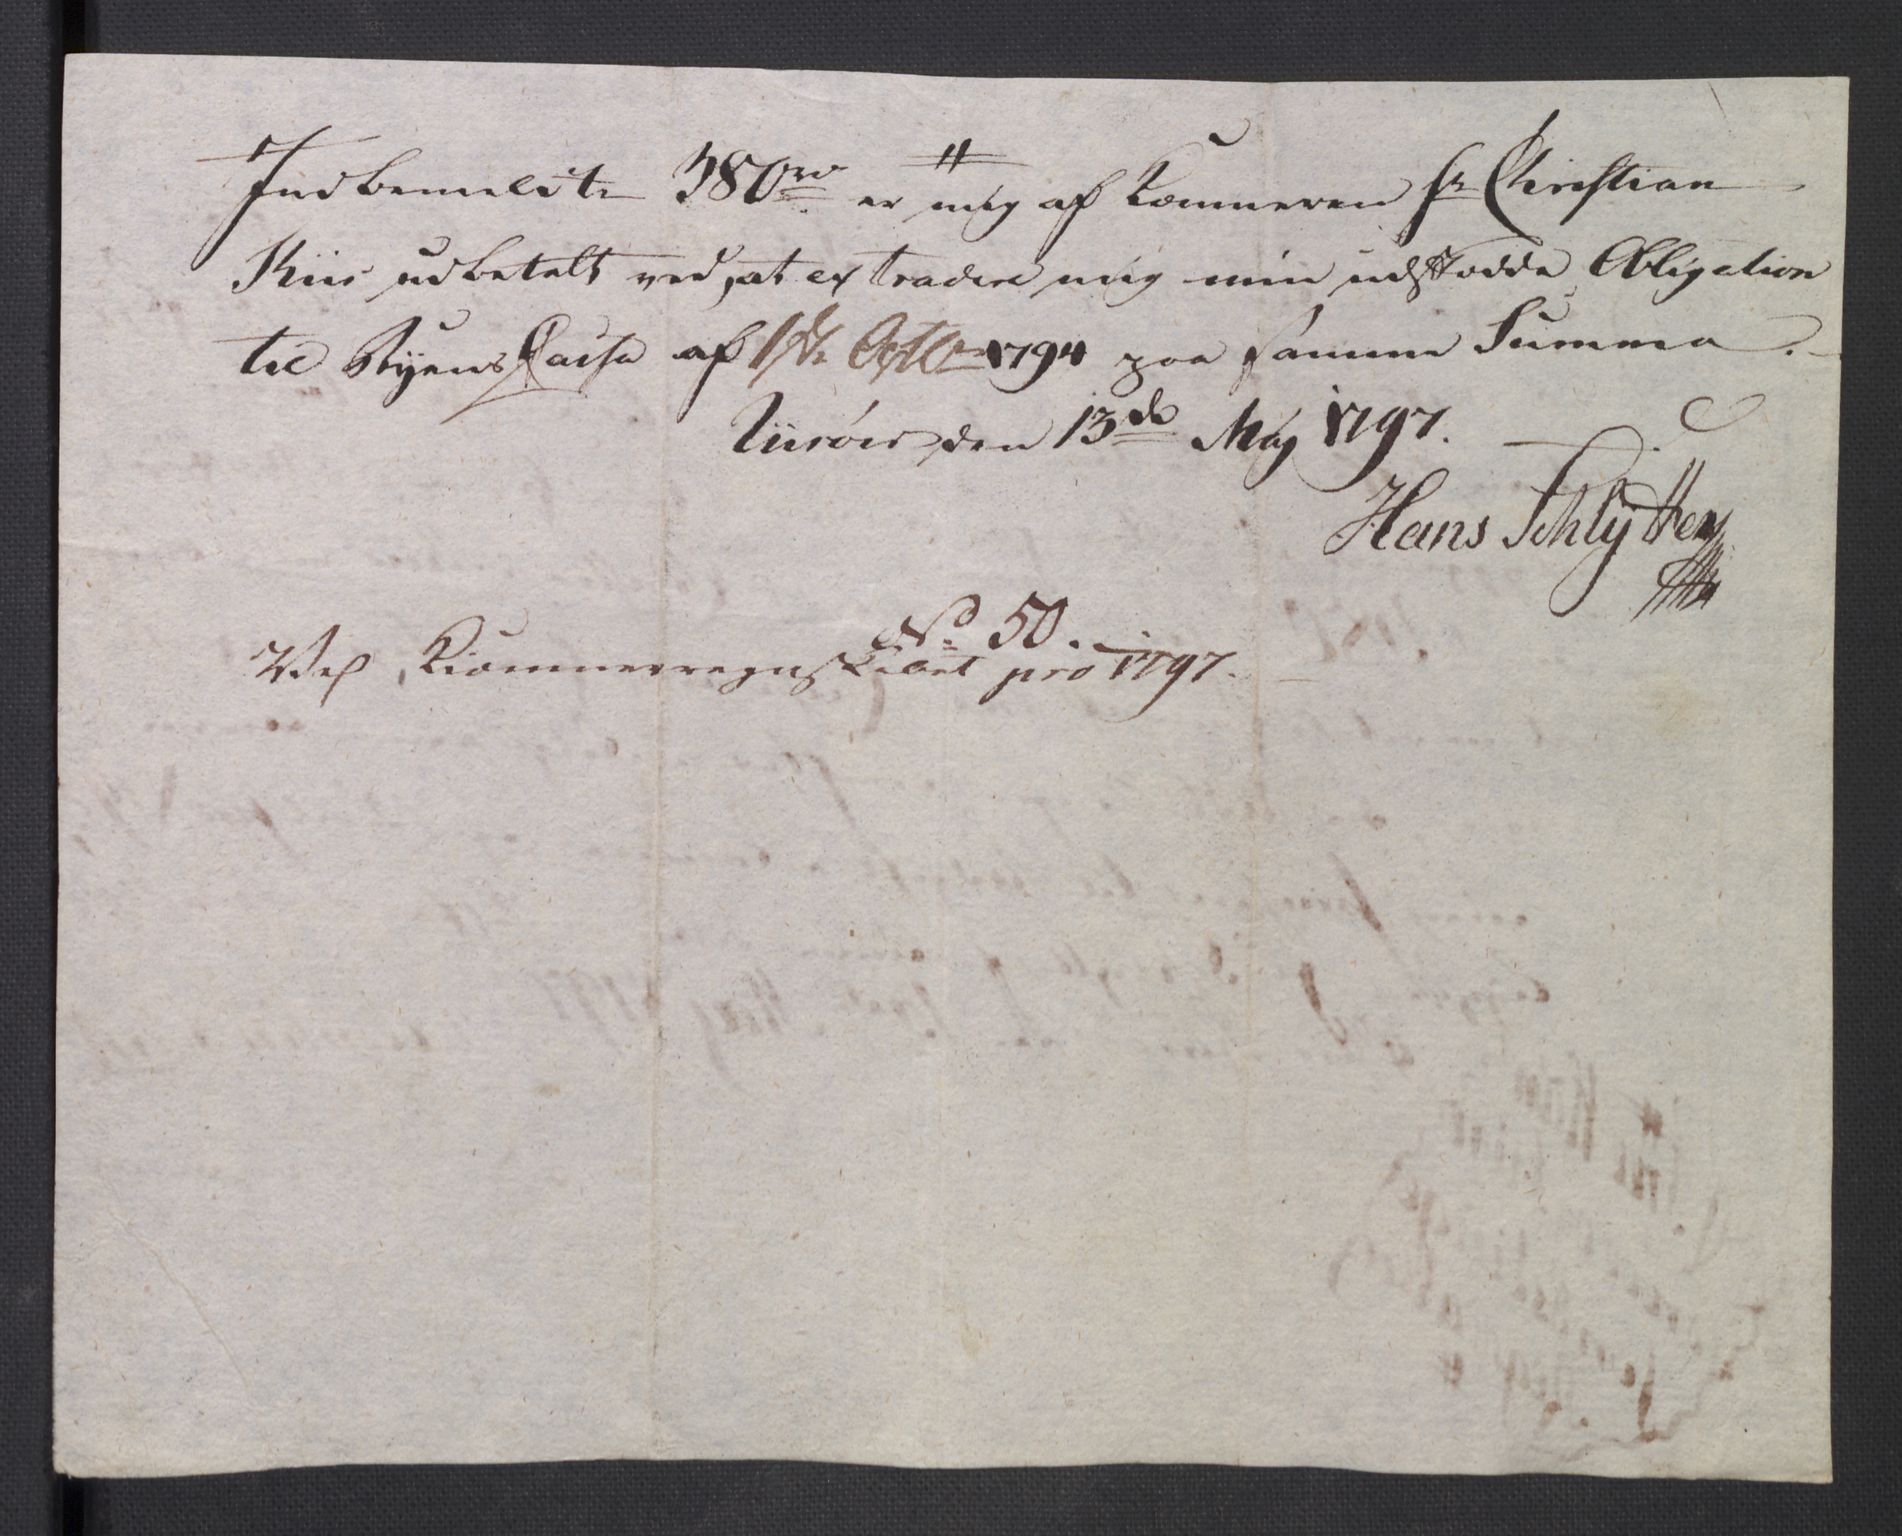 Indbemeldte 380 rd er mig af Kæmneren Hr Christian
Kiis udbetalt ved, at extradere mig min udstædde Obligation
til Byens Cassa af 1ste Octbr 1794 paa samme Summa.
Risöer den 13de Maj 1797.
Hans Schlytter
No 50.
Ved Kiæmnerregnskabet pro 1797.